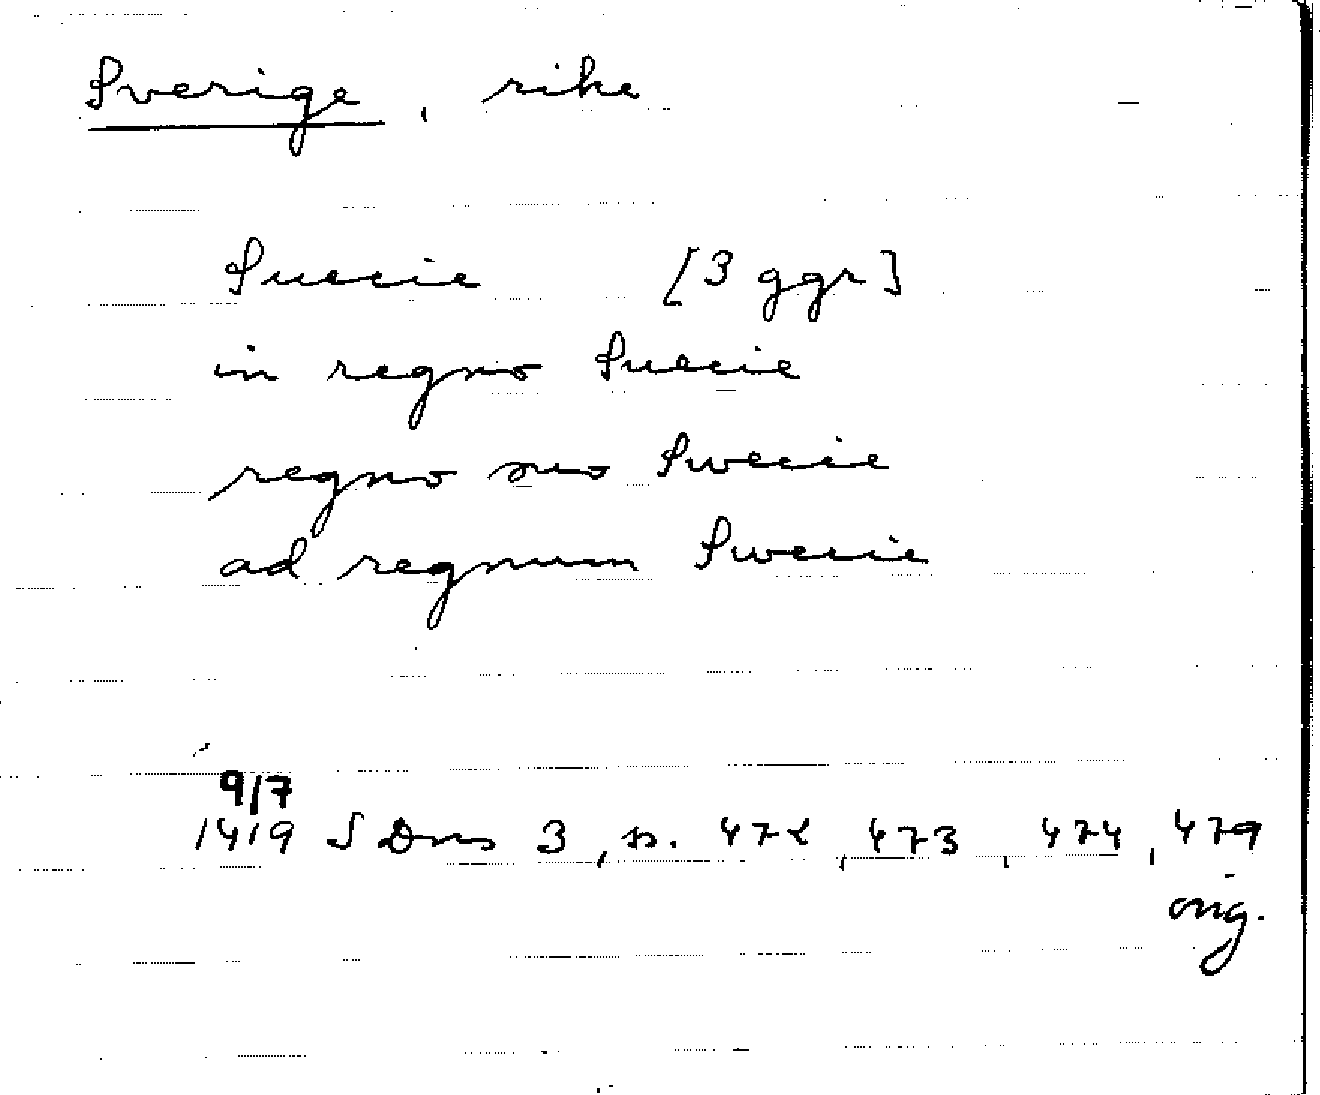 Sverige, rike
Suecie [3 ggr]
in regno Suecie
regno suo Swecie
ad regnum Swecie
9/7
1419 SDns 3, s. 472, 473, 474, 479
orig.